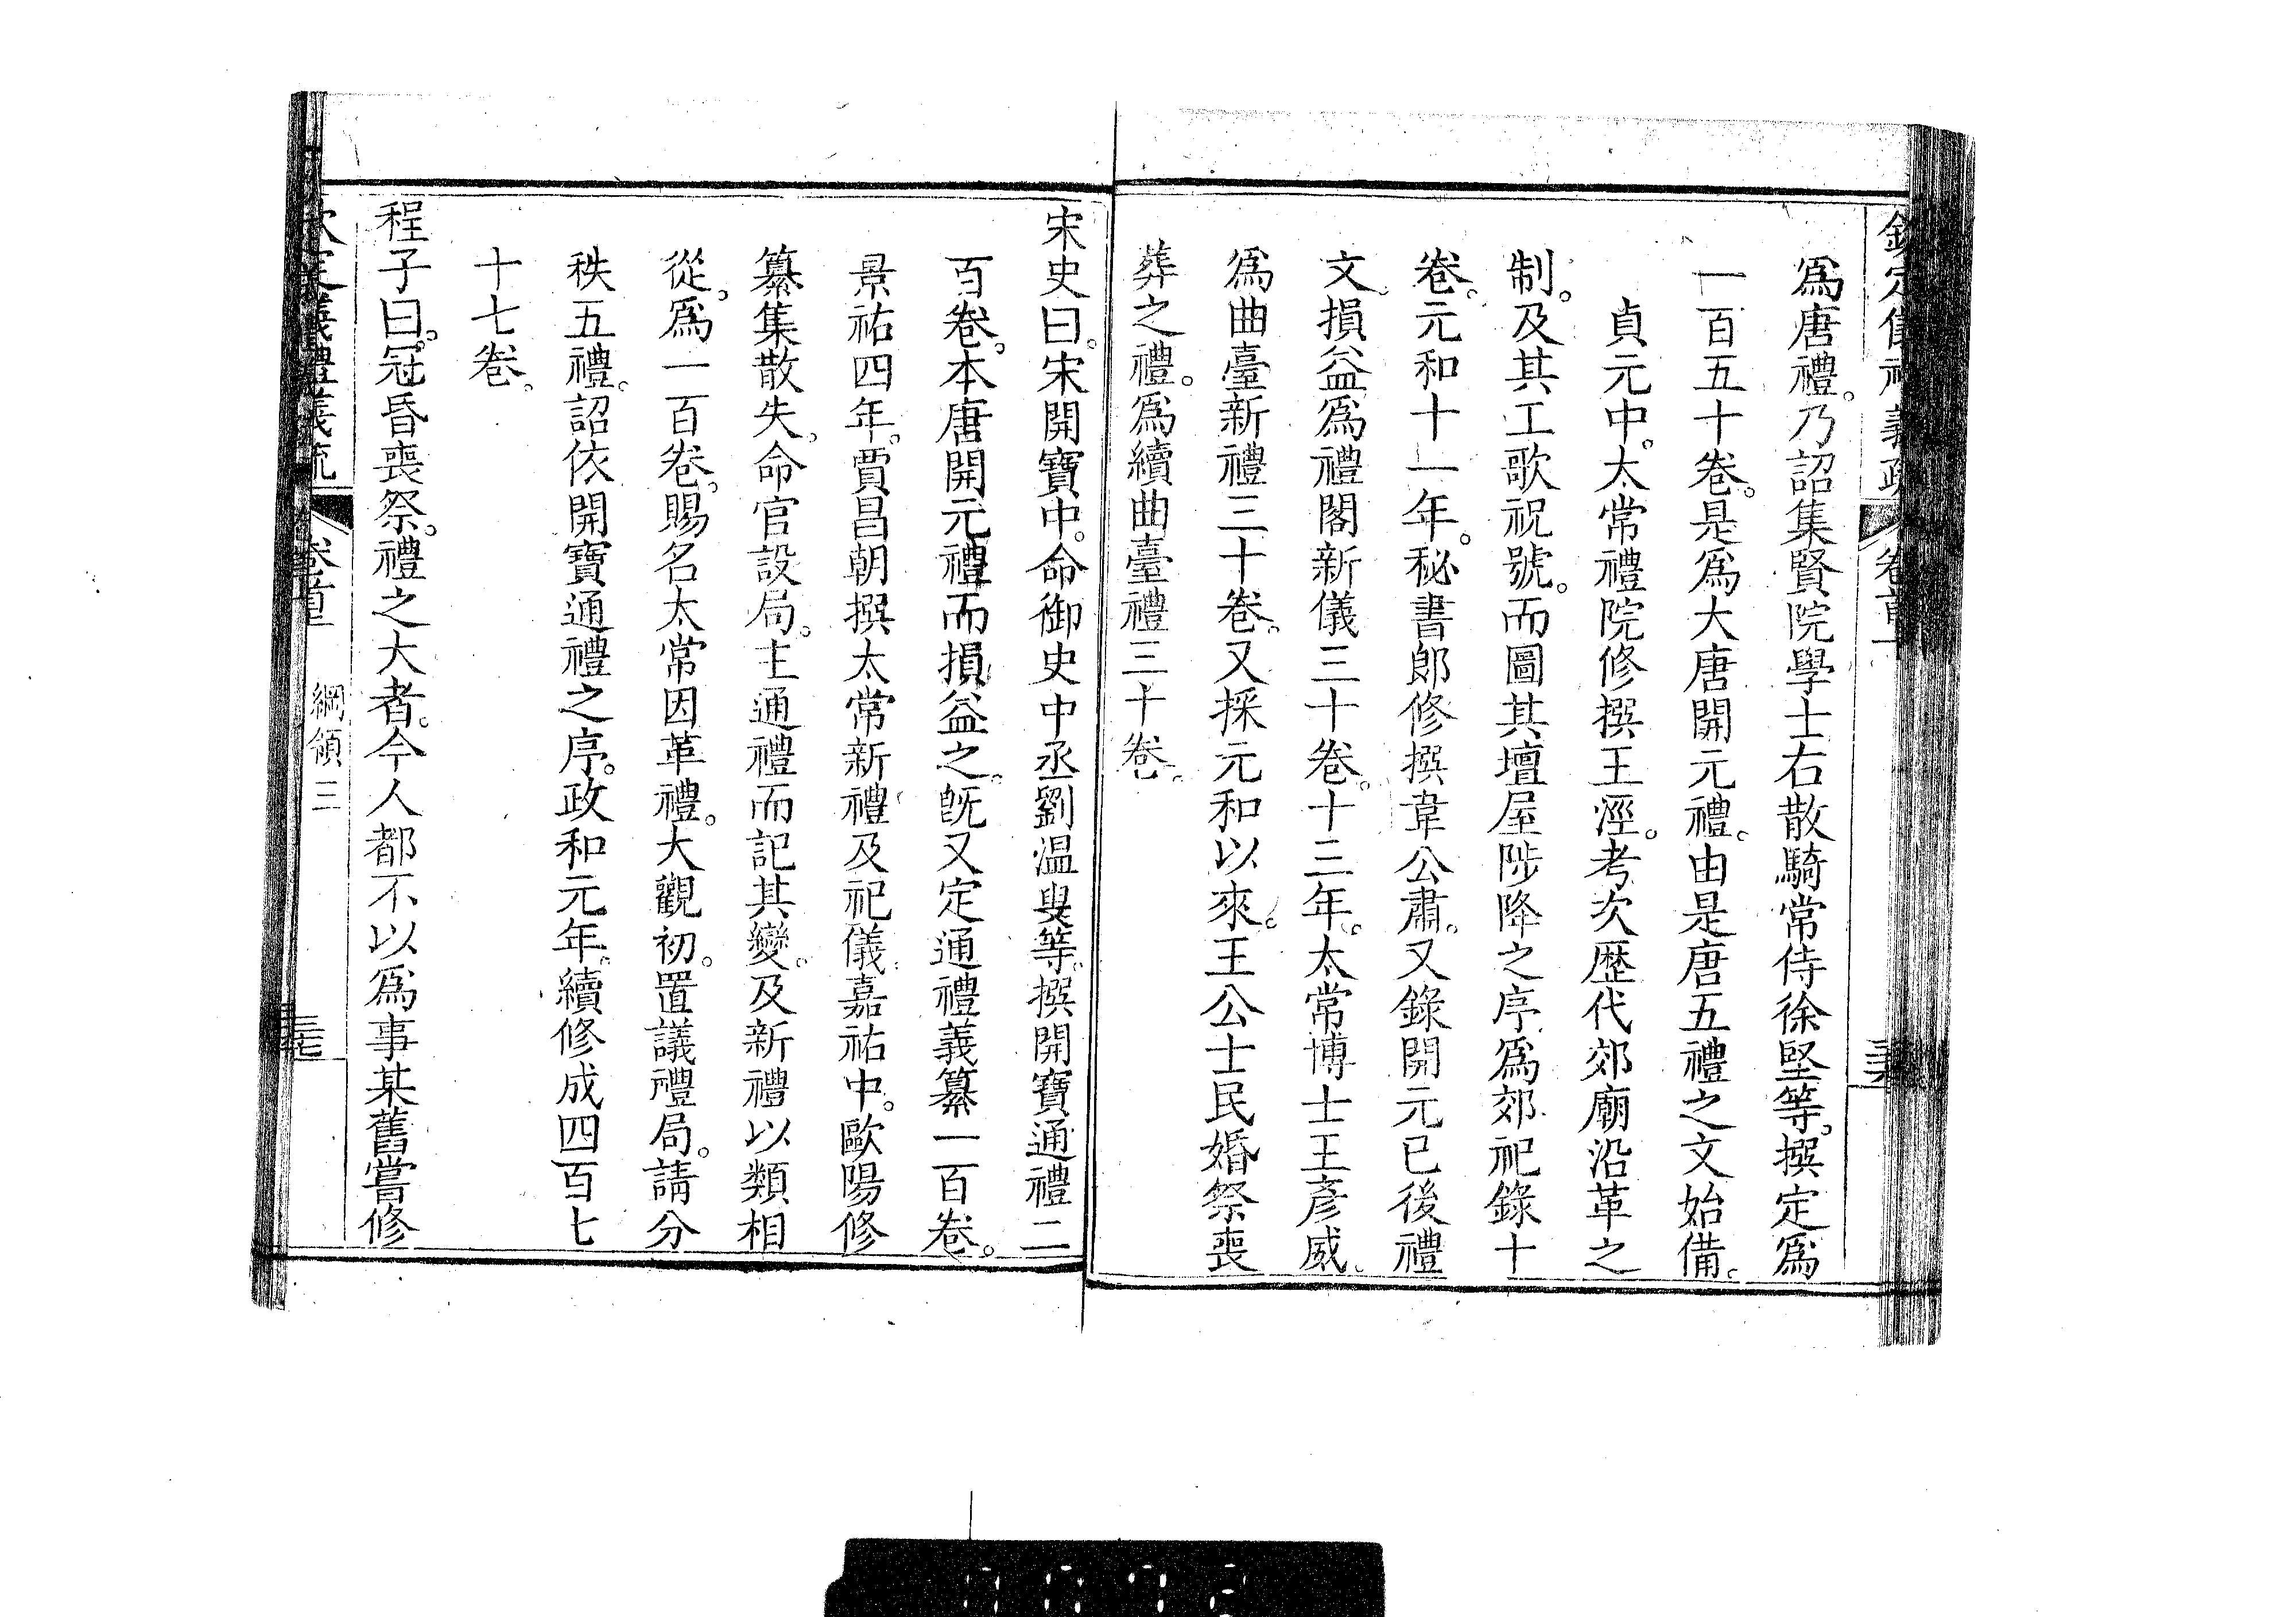 爲唐禮。乃詔集賢院學士右散騎常侍徐堅等。撰定爲
一百五十卷。是爲大唐開元禮。由是唐五禮之文始備。
貞元中。太常禮院修撰王涇。考次歷代郊廟沿革之
制。及其工歌祝號。而圖其壇屋陟降之序。爲郊祀錄十
卷。元和十一年。秘書郎修撰韋公肅。又錄開元已後禮
文。損益爲禮閣新儀三十卷。十三年。太常博士王彥威。
爲曲臺新禮三十卷。又採元和以來。王公士民婚祭喪
葬之禮。爲續曲臺禮三十卷。
宋史曰。宋開寶中。命御史中丞劉溫叟等。撰開寶通禮二
百卷。本唐開元禮而損益之。旣又定通禮義纂一百卷。
景祐四年。賈昌朝撰太常新禮及祀儀。嘉祐中。歐陽修
纂集散失。命官設局。主通禮而記其變。及新禮以類相
從。爲一百卷。賜名太常因革禮。大觀初。置議禮局。請分
秩五禮。詔依開寶通禮之序。政和元年。續修成四百七
十七卷。
程子曰。冠昏喪祭。禮之大者。今人都不以爲事某舊嘗修
欽定儀禮義疏 卷首 綱領三